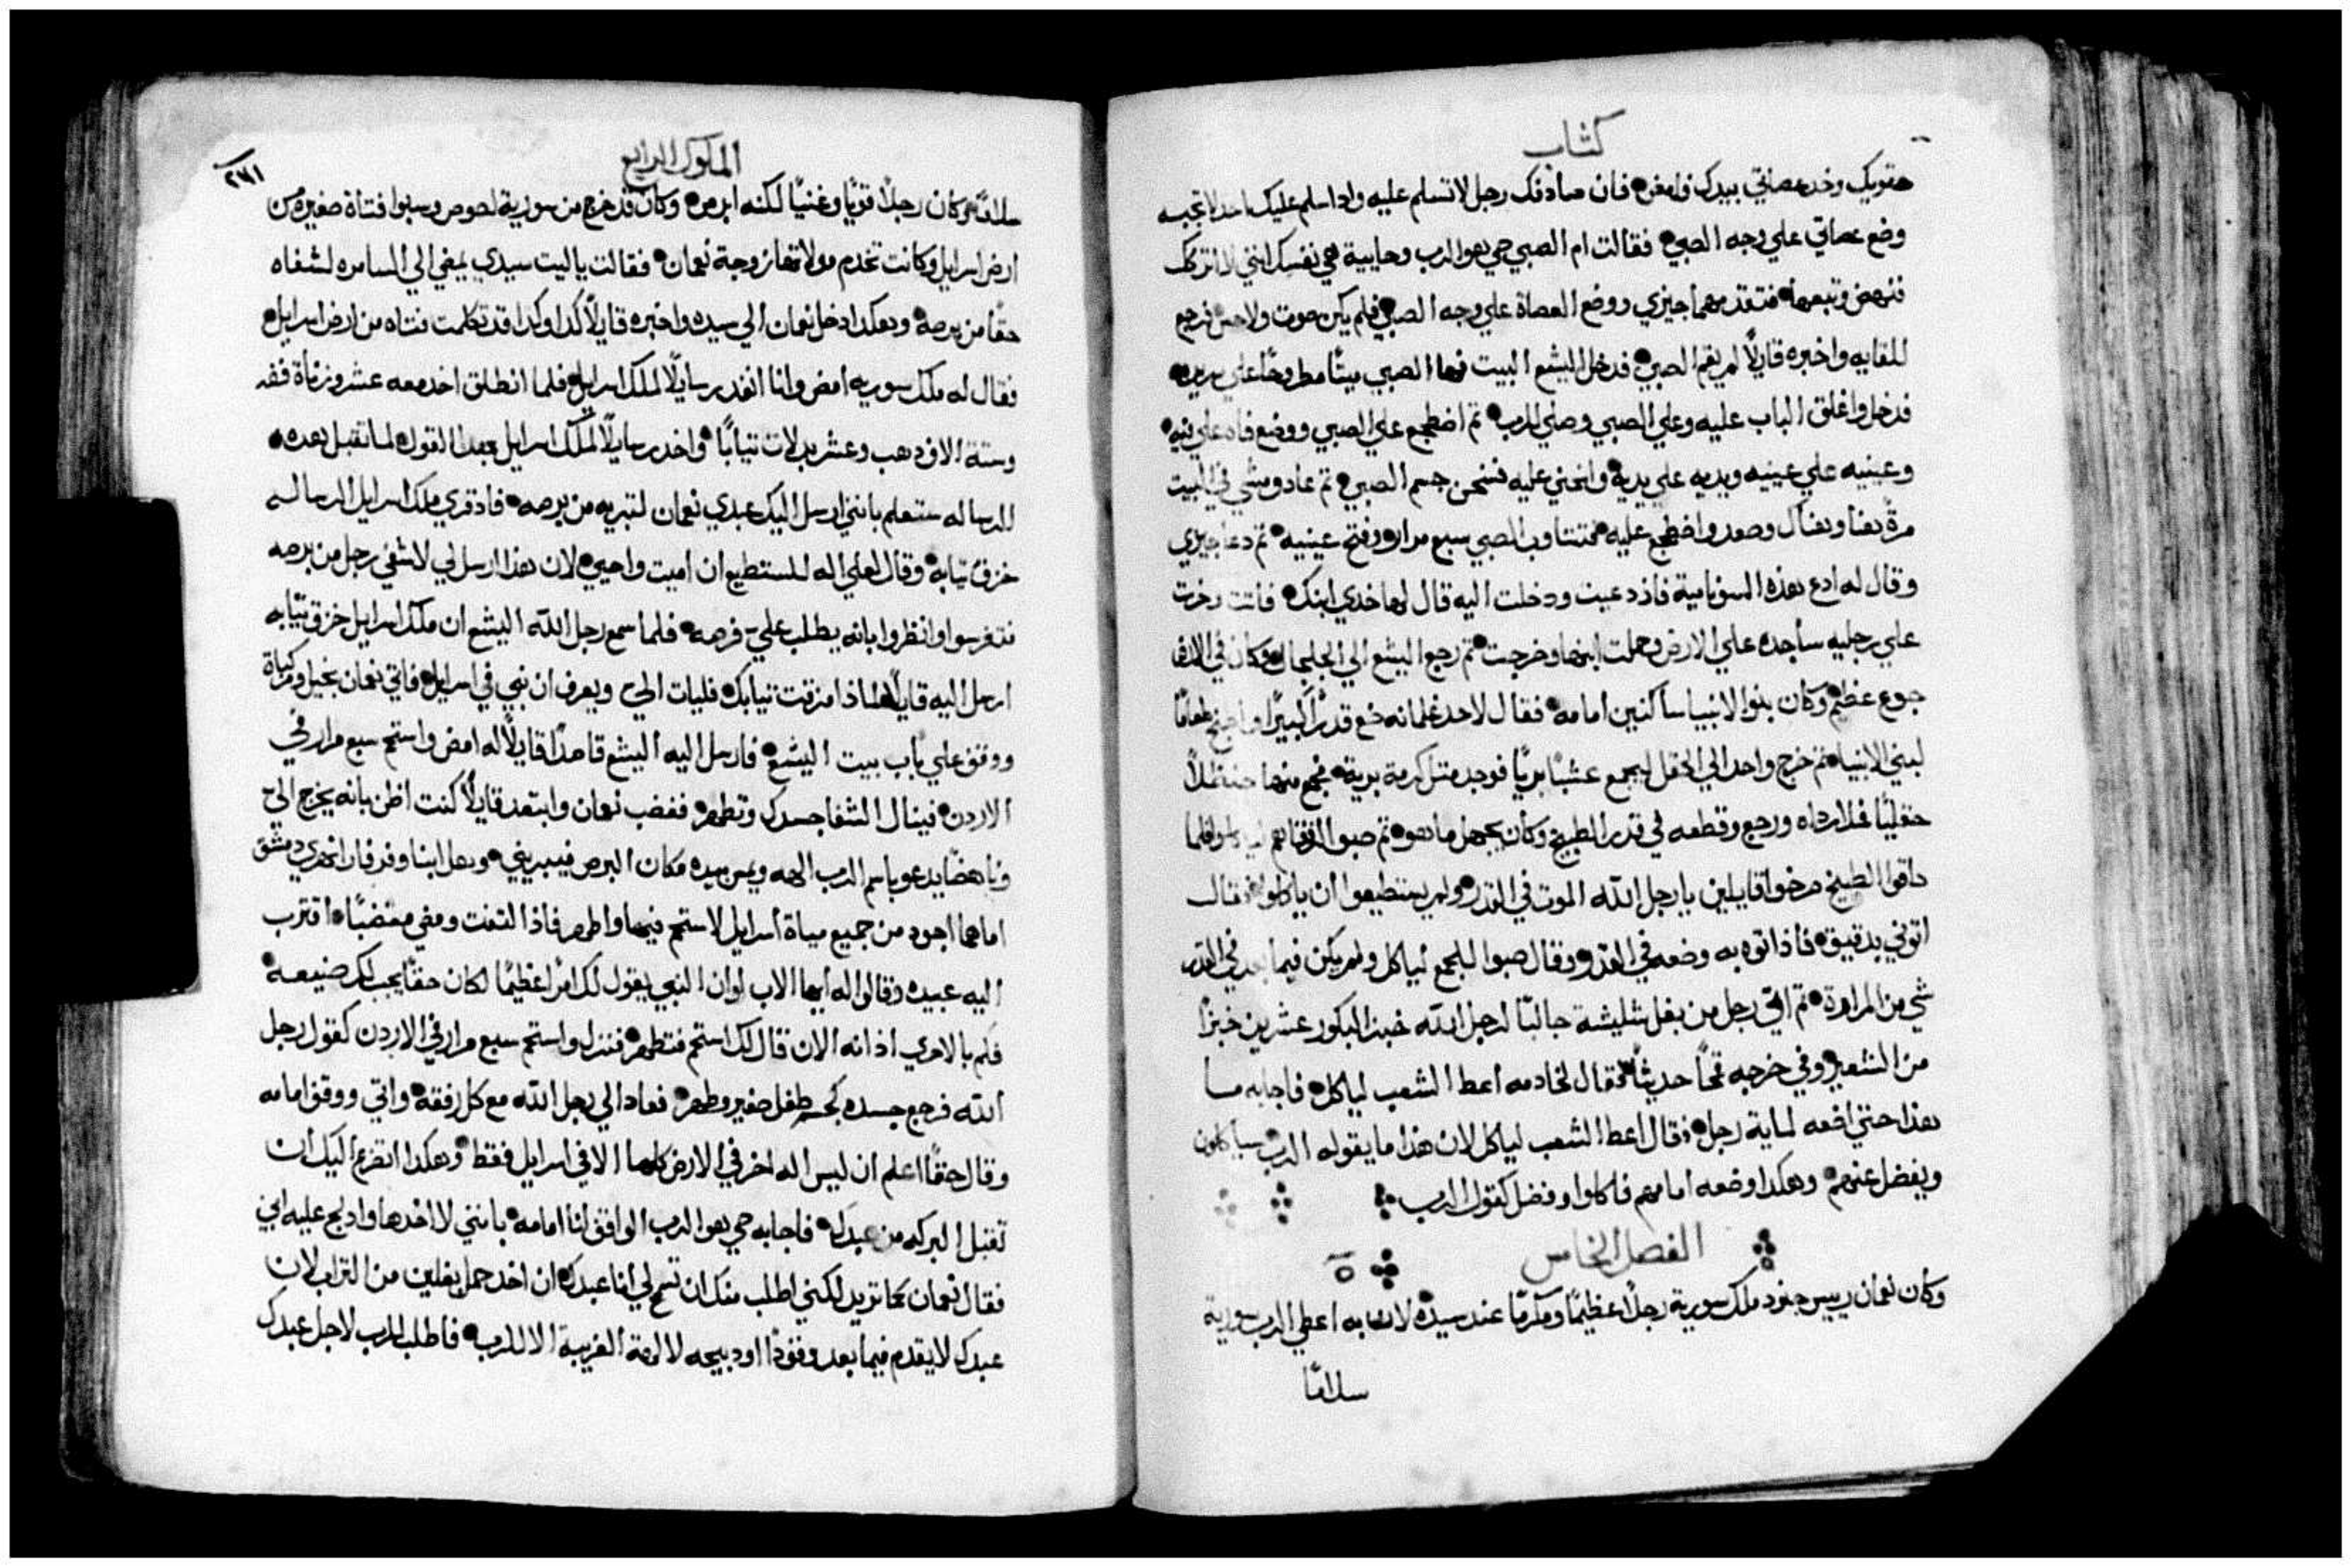 كتاب
حقويك وخد عصاتي بيدك وامض فان صادفك رجل لا تسلم عليه واداسلم عليك احد لا تجيبه
وضع عصاتي علي وجه الصبي فقالت ام الصبي حي هو الرب وحايية هي نفسك انني لا اتركك
فنهض وتبعها فتقدمهما جيزي ووضع العصاة علي وجه الصبي فلم يكن صوت ولا حس فرجع
للقايه واخبره قايلاً لم يقم الصبي فدخل اليشع البيت فها الصبي ميتًا مطروحًا علي سريره
فدخل واغلق الباب عليه وعلي الصبي وصلي للرب تم اضطجع علي الصبي ووضع فاه علي فيه
وعينيه علي عينيه ويديه علي يدية وانحني عليه فسخن جسم الصبي تم عاد ومشي في البيت
مرةً هنا وهناك وصعد واضطجع عليه فتتناوب الصبي سبع مرار وفتح عينيه تم دعا جيزي
وقال له ادع هذه السونامية فاذ دعيت ودخلت اليه قال لها خدي ابنك فاتت وخرت
علي رجليه ساجده علي الارض وحملت ابنها وخرجت تم رجع اليشع الي الجلجال وكان في الارض
جوع عظيم وكان بنوا الانبيا ساكنين امامه فقال لاحد غلمانه ضع قدرًا كبيرًا واطبخ طعامًا
لبني الانبيا تم خرج واحد الي الحقل ليجمع عشبًا بريًا فوجد متل كرمة برية فجمع منها حنظلاً
حقليًا فملا رداه ورجع وقطعه في قدر الطبيخ وكان يجهل ما هو تم صبوا لرفقاهم لياكلوا فلما
داقوا الطبيخ صرخوا قايلين يا رجل الله الموت في القدر ولم يستطيعوا ان ياكلوا فقال
اتوني بدقيق فاذ اتوه به وضعه في القدر وقال صبوا للجمع لياكل ولم يكن فيما بعد في القدر
شي من المرارة تم اتي رجل من بعل شليشة جالبًا لرجل الله خبز البكور عشرين خبزًا
من الشعير وفي خرجه قمحًا حديثًا فقال لخادمه اعط الشعب لياكل فاجابه ما
هذا حتي اضعه لماية رجل فقال اعط الشعب لياكل لان هذا ما يقوله الرب سياكلون
ويفضل عنهم وهكدا وضعه امامهم فاكلوا وفضل كقول الرب
الفصل الخامس ٥
وكان نعمان رييس جنود ملك سورية رجلاً عظيمًا ومكرمًا عند سيده لان به اعطي الرب سورية
سلامًا
الملوك الرابع
٢٧١
سلامًا وكان رجلاً قويًا وغنيًا لكنه ابرص وكان قد خرج من سورية لصوص وسبوا فتاة صغيره من
ارض اسرايل وكانت تخدم مولاتها زوجة نعمان فقالت يا ليت سيدي يمضي الي السامره لشفاه
حقًا من برصه وهكدا دخل نعمان الي سيده واخبره قايلاً كدا وكدا قد تكلمت فتاه من ارض اسرايل
فقال له ملك سوريه امض وانا انفد رسايلاً لملك اسرايل فلما انطلق اخد معه عشر وزناة فضه
وستة الاف دهب وعشر بدلات تيابًا واخد رسايلاً لملك اسرايل بهدا القول لما تقبل هده
الرساله ستعلم بانني ارسل اليك عبدي نعمان لتبريه من برصه فاذ قري ملك اسرايل الرساله
خزق تيابه وقال لعلي اله لاستطيع ان اميت واحيي لان هذا ارسل لي لاشفي رجل من برصه
فتفرسوا وانظروا بانه يطلب علي فرصه فلما سمع رجل الله اليشع ان ملك اسرايل خزق تيابه
ارسل اليه قايلاً لماذا مزقت تيابك فليات الي ويعرف ان نبي في اسرايل فاتي نعمان بخيل ومركباة
ووقف علي باب بيت اليشع فارسل اليه اليشع قاصدًا قايلاً له امض واستحم سبع مرار في
الاردن فينال الشفا جسدك وتطهر فغضب نعمان وابتعد قايلاً كنت اظن بانه يخرج الي
وناهضًا يدعو باسم الرب الهه ويمس بيده مكان البرص فيبريني وهل ابنا وفرفار انهري دمشق
اما هما اجود من جميع مياة اسرايل لاستحم فيها واطهر فاذ التفت ومضي مغضبًا اقترب
اليه عبيده وقالوا له ايها الاب لو ان النبي يقول لك امرًا عظيمًا لكان حقًا يجب لك صنيعه
فكم بالاحري اذ انه الان قال لك استحم فتطهر فنزل واستحم سبع مرار في الاردن كقول رجل
الله فرجع جسده كجسم طفل صغير وطهر فعاد الي رجل الله مع كل رفقه واتي ووقف امامه
وقال حقًا اعلم ان ليس اله اخر في الارض كلها الا في اسرايل فقط وهكدا اتضرع اليك ان
تقبل البركه من عبدك فاجابه حي هو الرب الواقف انا امامه بانني لا اخدها واد لج عليه ابي
فقال نعمان كما تريد لكني اطلب منك ان تسمح لي انا عبدك ان اخد حمل بغلين من التراب لان
عبدك لا يقدم فيما بعد وقودًا او دبيحه لالهة الغريبة الا للرب فاطلب للرب لاجل عبدك